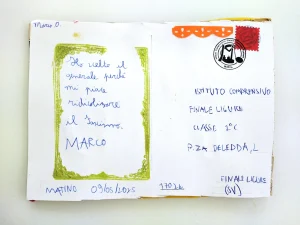 Marco D.
Ho scelto il
generale perché
mi piace
ridicolizzare
il
MARCO
MATINO 09/05/2025
ISTITUTO COMPRENSIVO
FINALE LIGURE
CLASSE 2°C
P.ZA DELEDDA, 1
FINALE LIGURE
(SV)